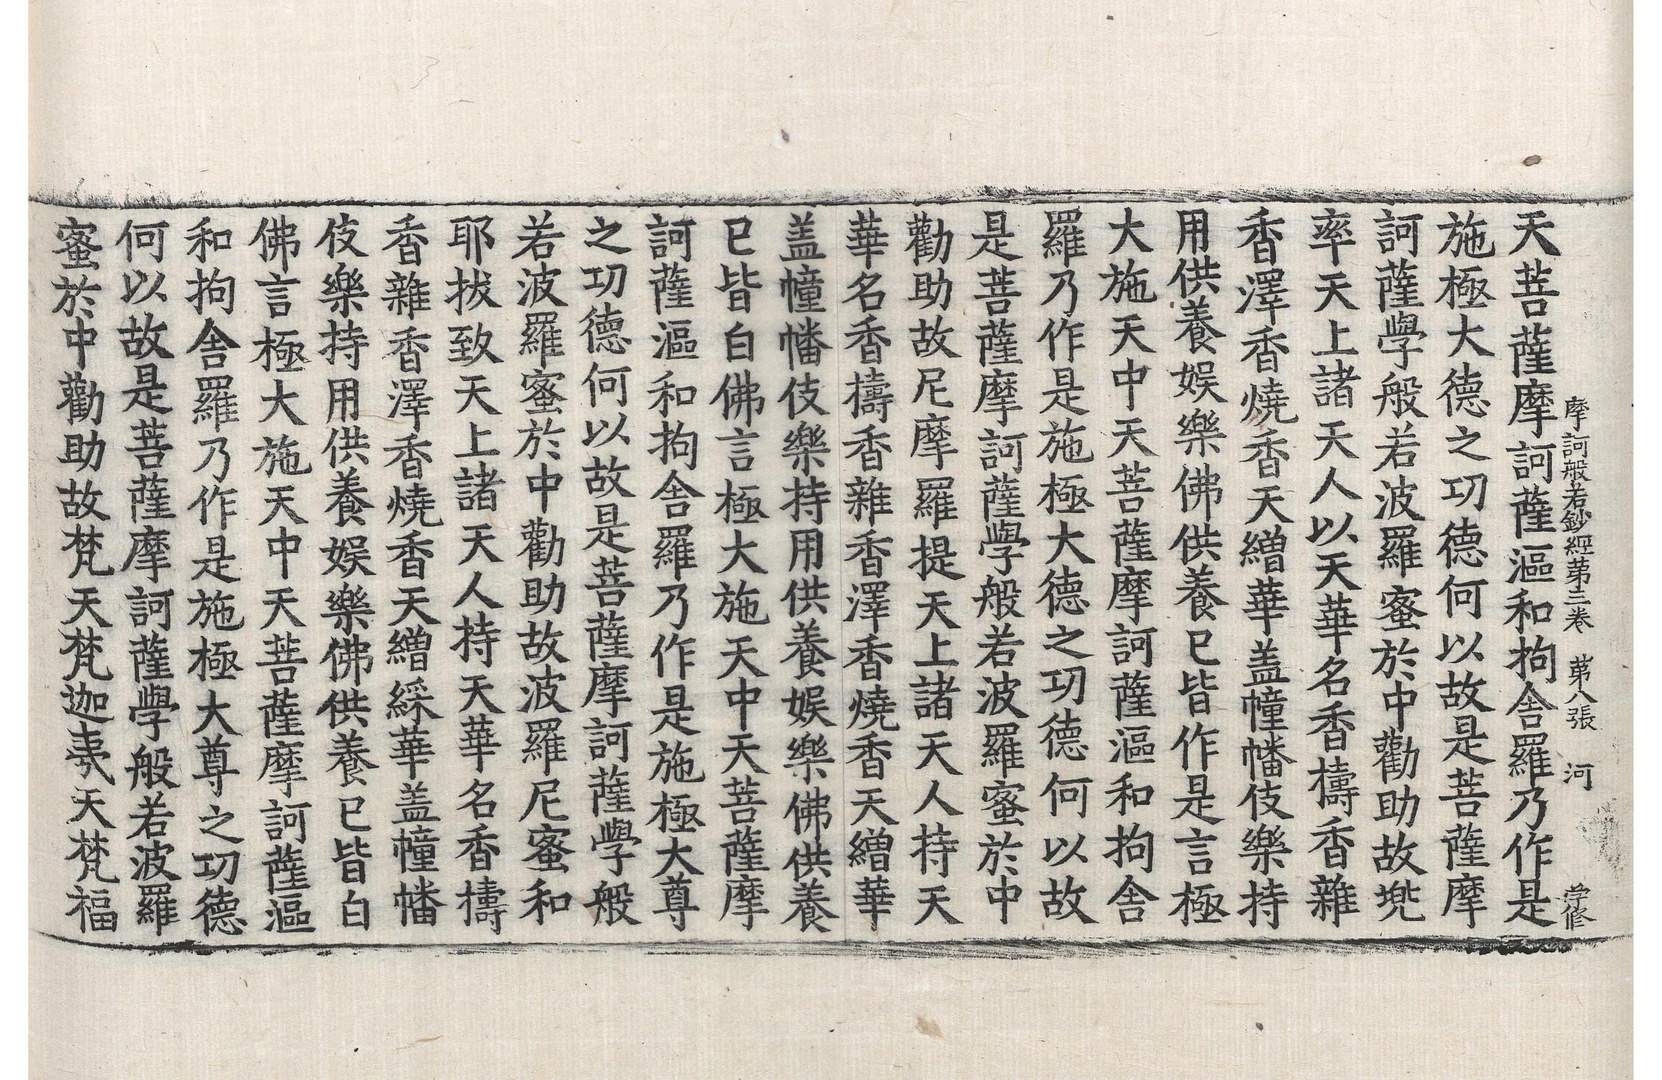 摩訶般若鈔經第三卷　第八張　河　学修
天菩薩摩訶薩漚和拘舍羅乃作是
施極大德之功德何以故是菩薩摩
訶薩學般若波羅蜜於中勸助故兠
率天上諸天人以天華名香擣香雜
香澤香燒香天繒華盖幢幡伎樂持
用供養娛樂佛供養已皆作是言極
大施天中天菩薩摩訶薩漚和拘舍
羅乃作是施極大德之功德何以故
是菩薩摩訶薩學般若波羅蜜於中
勸助故尼摩羅提天上諸天人持天
華名香擣香雜香澤香燒香天繒華
盖幢幡伎樂持用供養娛樂佛供養
已皆白佛言極大施天中天菩薩摩
訶薩漚和拘舍羅乃作是施極大尊
之功德何以故是菩薩摩訶薩學般
若波羅蜜於中勸助故波羅尼蜜和
耶拔致天上諸天人持天華名香擣
香雜香澤香燒香天繒綵華盖幢幡
伎樂持用供養娛樂佛供養已皆白
佛言極大施天中天菩薩摩訶薩漚
和拘舍羅乃作是施極大尊之功德
何以故是菩薩摩訶薩學般若波羅
蜜於中勸助故梵天梵迦夷天梵福